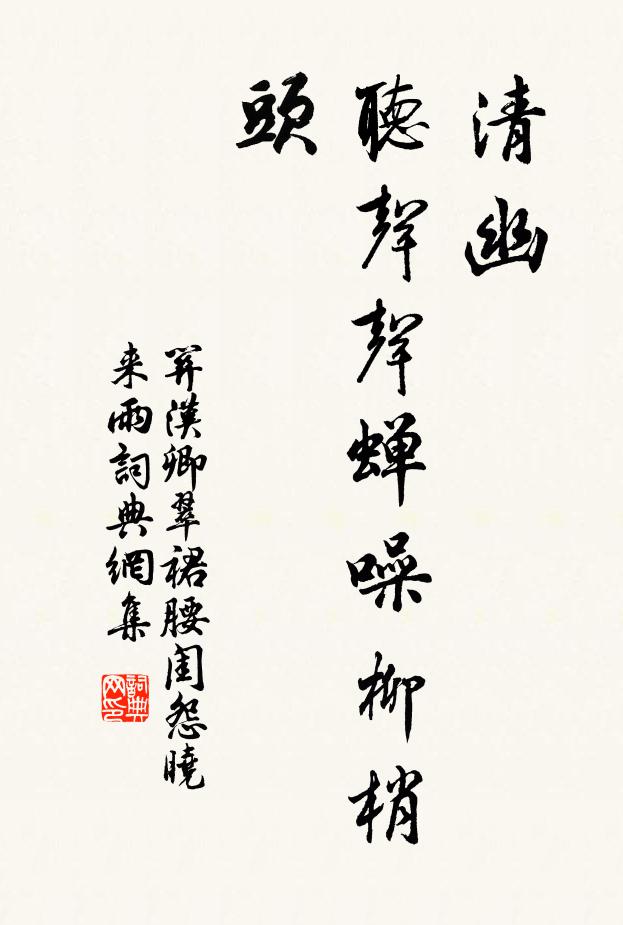 清幽
聽聲聲蟬噪柳梢
頭
羿漢卿翠裙腰閨怨曉
来雨詞典網集
詞典
网印